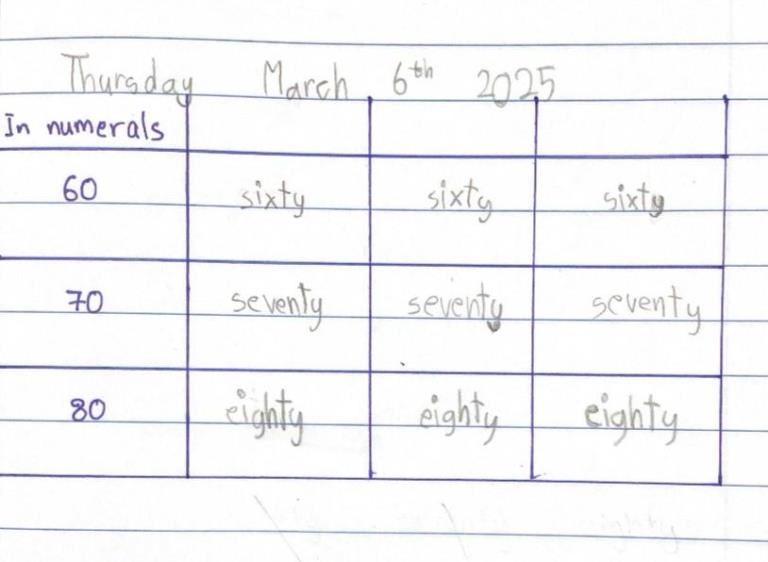 Thursday March 6th 2025
In numerals
60 sixty sixty sixty
70 seventy seventy seventy
80 eighty eighty eighty